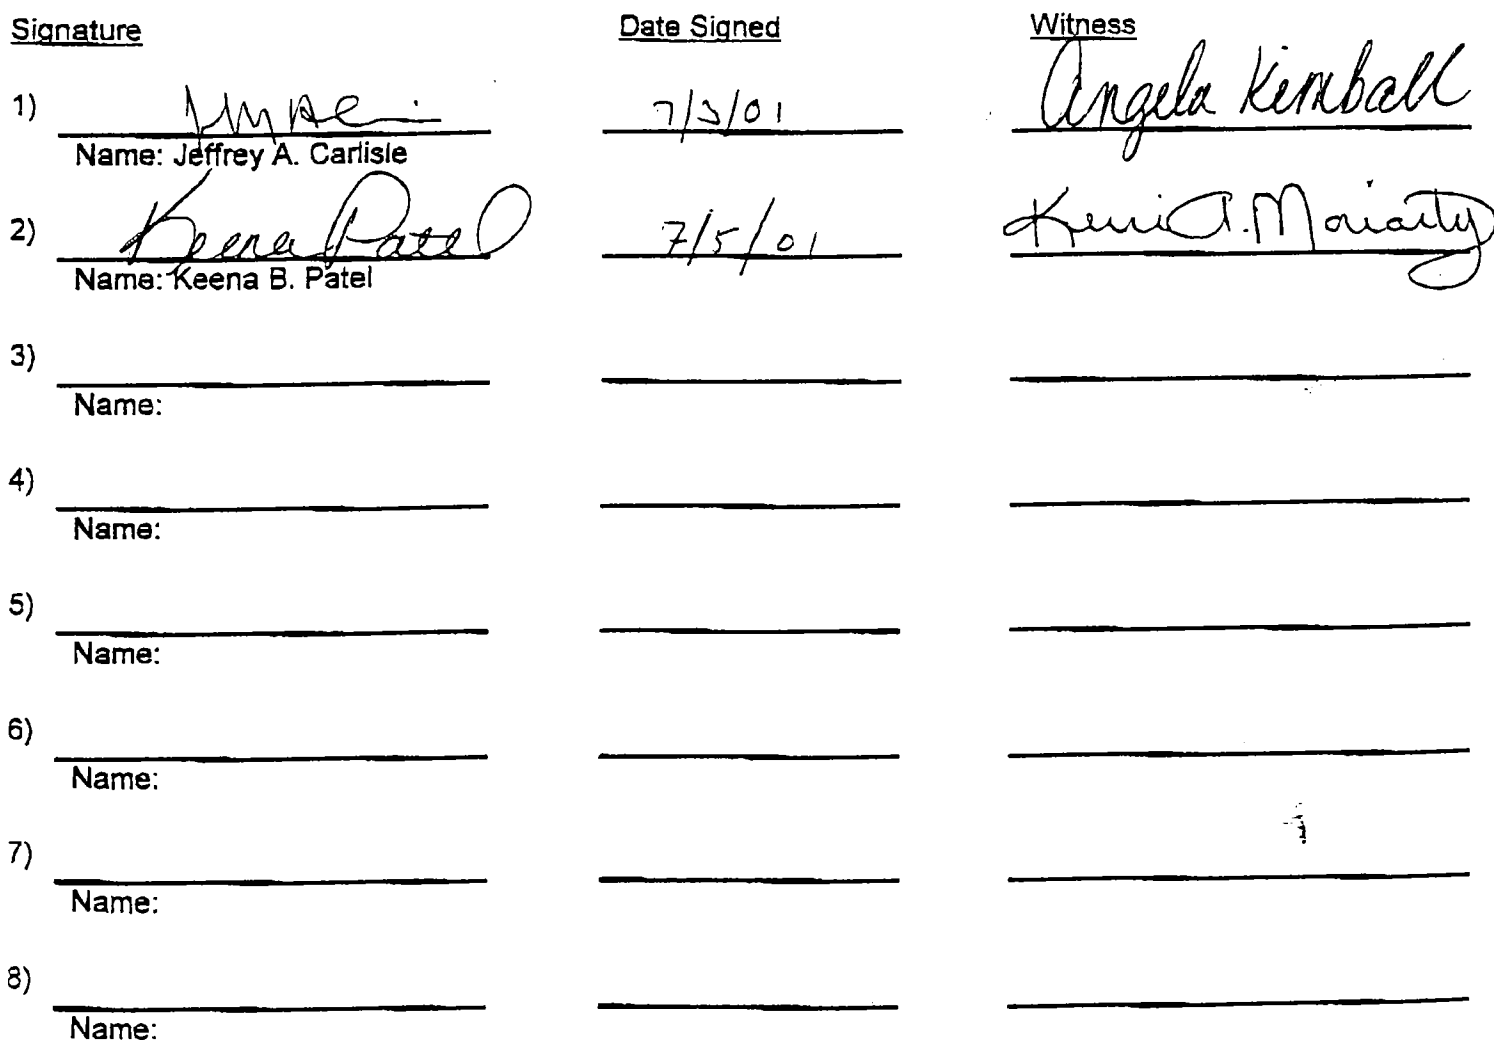 Signature Date Signed Witness
1) 7/3/01 Angela Kimball
Name: Jeffrey A. Carlisle
2) Keena Patel 7/5/01 Kerri A. Moriarty
Name: Keena B. Patel
3)
Name:
4)
Name:
5)
Name:
6)
Name:
7)
Name:
8)
Name: